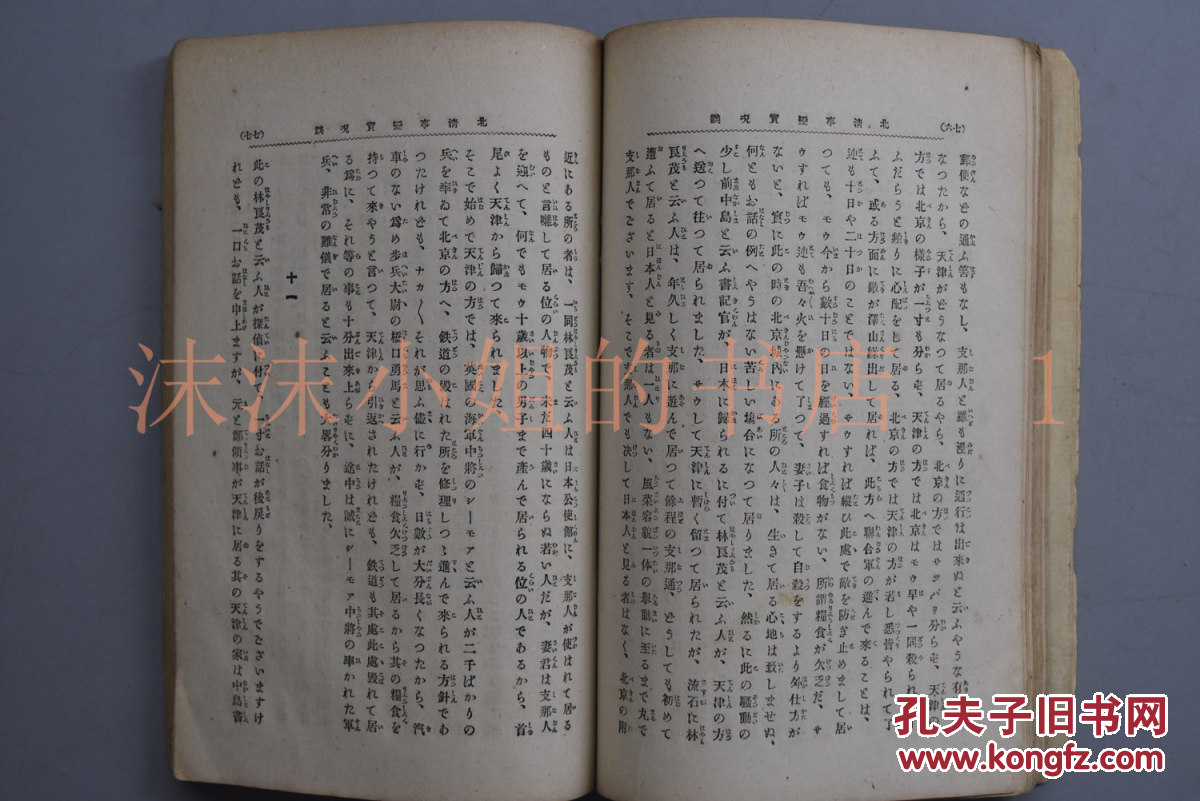 北淸事變實視談
(七六)
郵便などの通ふ筈もなし、支那人と雖も濫りに通行は出來ぬと云ふやうな有
なつたから、天津がどうなつて居るやら、北京の方ではサツパリ分らず、天津の
方では北京の樣子が一寸も分らず、天津の方では北京はモウ早や一同殺られ
ふだらうと頻りに心配をして居る、北京の方では天津の方が若し悉皆やられて
ふて、或る方面に敵が澤山繰出して居れば、此方へ聯合軍の進んで來ることは、
迚も十日や二十日のことではない、サウすれば縱ひ此處で敵を防ぎ止めまして居
つても、モウ今から數十日の日を經過すれば食物がない、所謂糧食が欠乏だ、サ
ウすればモウ迚も吾々火を懸けて了つて、妻子は殺して自殺をするより外仕方が
ないと、實に此の時の北京城內にある所の人々は、生きて居る心地は致しませぬ、
何ともお話の例へやうはない苦しい塲合になつて居りました、然るに此の騷動の
少し前中島と云ふ書記官が、日本に歸られるに付て林莨茂と云ふ人が、天津の方
へ送つて往つて居られました、サウして天津に暫く留つて居られたが、流石に林
莨茂と云ふ人は、年久しく支那に遊んで居つて餘程の支那通、どうしても初めて
遭ふて居ると日本人と見る者は一人もない、風采容貌一体の擧動に至るまで丸で
支那人でございます、そこで支那人でも决して日本人と見る者はなく、北京の附
北淸事變實視談
(七七)
近にある所の者は、一同林莨茂と云ふ人は日本公使館に、支那人が使はれて居る
ものと言囃して居る位の人物で、未だ四十歲にならぬ若い人だが、妻君は支那人
を迎へて、何でもモウ十歲以上の男子まで產んで居られる位の人であるから、首
尾よく天津から歸つて來られました、
そこで始めて天津の方では、英國の海軍中將のシーモアと云ふ人が二千ばかりの
兵を率ゐて北京の方へ、鐵道の毀はれた所を修理しつゝ進んで來られる方針であ
つたけれども、ナカ〱それが思ふ儘に行かず、日數が大分長くなつたから、汽
車のない爲め步兵大尉の橋口勇馬と云ふ人が、糧食欠乏して居るから其の糧食を
持つて來やうと言つて、天津から引返されたけれども、鐵道も其處此處毀れて居
る爲に、それ等の事も十分出來上らずに、途中は誠にシーモア中將の率かれた軍
兵、非常の難儀で居ると云ふことも大畧分りました、
十一
此の林莨茂と云ふ人が探偵に付て、一寸お話が後戾りをするやうでございますけ
れども、一口お話を申上ますが、元と鄭領事が天津に居る其の天津の家は中島書
沫沫小姐的书店 1
孔夫子旧书网
www.kongfz.com